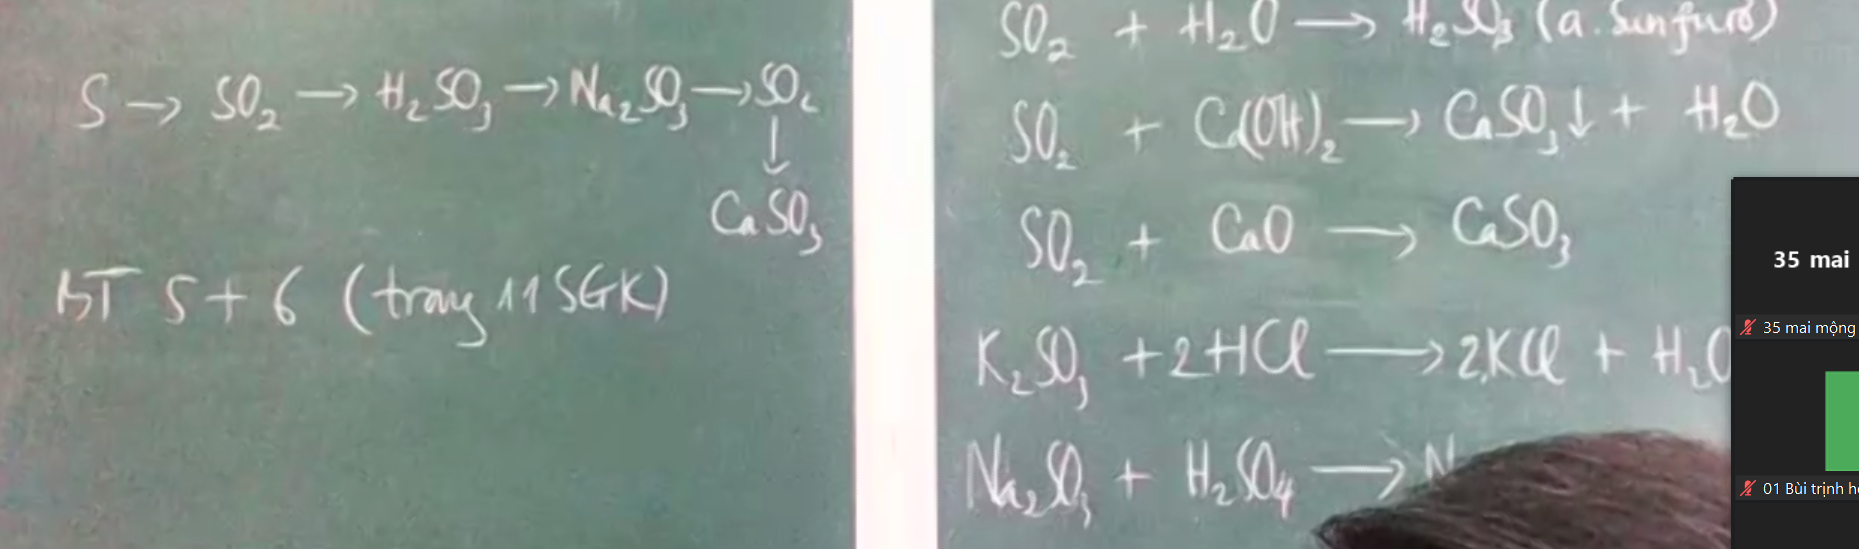 S → SO₂ → H₂SO₃ → Na₂SO₃ → SO₂
↓
CaSO₃
BT 5 + 6 (trang 11 SGK)
SO₂ + H₂O → H₂SO₃ (a. Sunfurơ)
SO₂ + Ca(OH)₂ → CaSO₃↓ + H₂O
SO₂ + CaO → CaSO₃
K₂SO₃ + 2HCl → 2KCl + H₂O
Na₂SO₃ + H₂SO₄ → N
35 mai
35 mai mộng
01 Bùi trịnh h